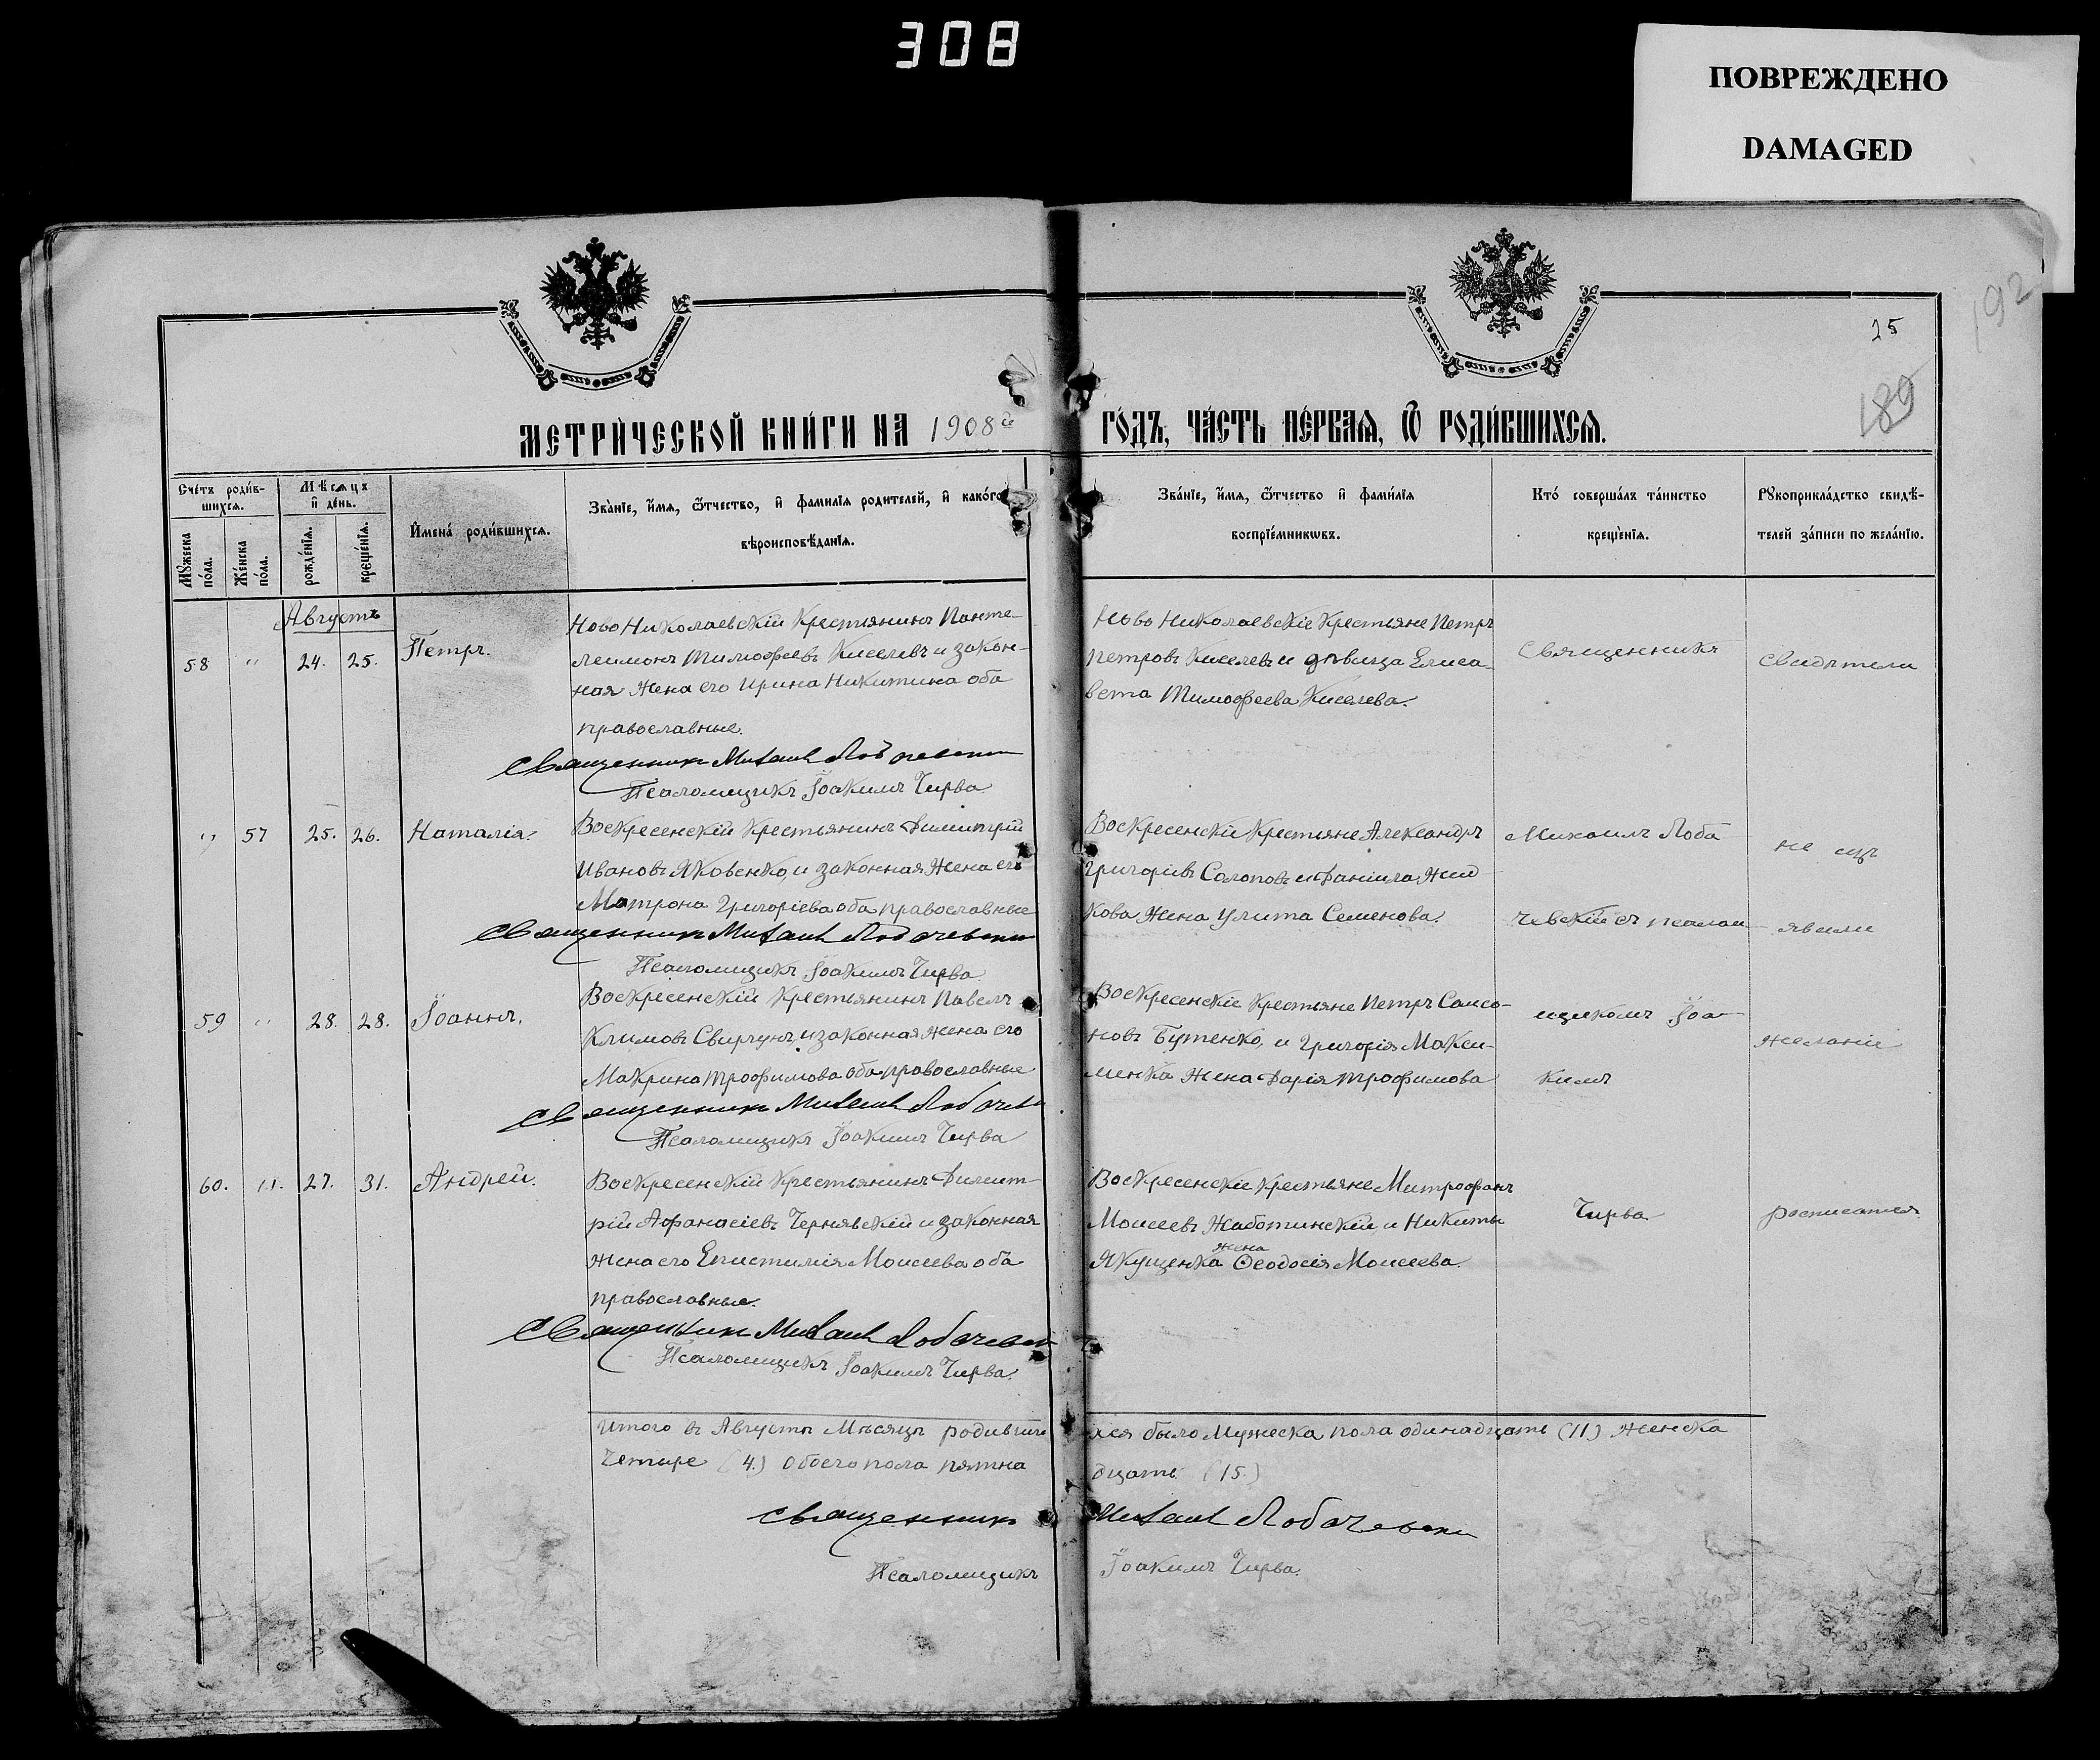 308
ПОВРЕЖДЕНО
DAMAGED
192
25
189
МЕТРИ́ЧЕСКОЙ КНИ́ГИ НА 1908й
ГО́ДЪ, ЧА́СТЬ ПЕ́РВАѦ, Ѿ РОДИ́ВШИХСѦ.
Сче́тъ роди́в-
шихсѧ.
Мѣ́сѧцъ
и҆ де́нь.
Мꙋ́жеска по́ла.
Же́нска по́ла.
рожде́нїѧ.
креще́нїѧ.
И҆мена̀ роди́вшихсѧ.
Зва́нїе, и҆́мѧ, ѻ҆́тчество, и҆ фамилїѧ родителей, и҆ како́гѡ
вѣроисповѣ́данїѧ.
Зва́нїе, и҆́мѧ, ѻ҆́тчество и҆ фами́лїѧ
воспрїе́мникѡвъ.
Кто́ соверша́лъ та́инство
креще́нїѧ.
Рꙋкоприкла́дство свидѣ́-
телей за́писи по жела́нїю.
Августъ
58 " 24. 25. Петръ.
Ново Николаевскій Крестьянинъ Панте-
леимонъ Тимофеевъ Киселевъ и закон-
ная жена его Ирина Никитина оба
православные.
Священникъ Михаилъ Лобачевски
Псаломщикъ Іоакимъ Чирва
Ново Николаевскіе Крестьяне Петръ
Петровъ Киселевъ и дѣвица Елиса-
вета Тимофеева Киселева.
Священникъ
Свидѣтели
" 57 25. 26. Наталія.
Воскресенскій Крестьянинъ Димитрій
Ивановъ Яковенко, и законная жена его
Матрона Григоріева оба православные
Священникъ Михаилъ Лобачевски
Псаломщикъ Іоакимъ Чирва
Воскресенскіе Крестьяне Александръ
Григоріевъ Солопов и Даніила Жид
кова жена Улита Семенова.
Михаилъ Лоба
чевскій съ псалом
не изъ
явили
59 " 28. 28. Іоаннъ.
Воскресенскій Крестьянинъ Павелъ
Климовъ Свиргунъ, и законная жена его
Макрина Трофимова оба православные
Священникъ Михаилъ Лобачевс
Псаломщикъ Іоакимъ Чирва
Воскресенскіе Крестьяне Петръ Самсо-
новъ Бутенко, и Григорія Макси-
менка жена Дарія Трофимова
щикомъ Іоа-
кимъ
желаніе
60. " 27. 31. Андрей.
Воскресенскій Крестьянинъ Димит-
рій Афанасіевъ Чернявскій и законная
жена его Епистимія Моисеева оба
православные.
Священникъ Михаилъ Лобачевск
Псаломщикъ Іоакимъ Чирва.
Воскресенскіе Крестьяне Митрофанъ
Моисеевъ Жаботинскій, и Никиты
жена
Якущенка Ѳеодосія Моисеева.
Чирва
росписатся
Итого въ Августѣ Мѣсяцѣ родивши хся было Мужеска пола одинадцать (11) Женска
Четыре (4.) Обоего пола пятна дцать (15.)
Священникъ Михаилъ Лобачевски
Псаломщикъ Іоакимъ Чирва.